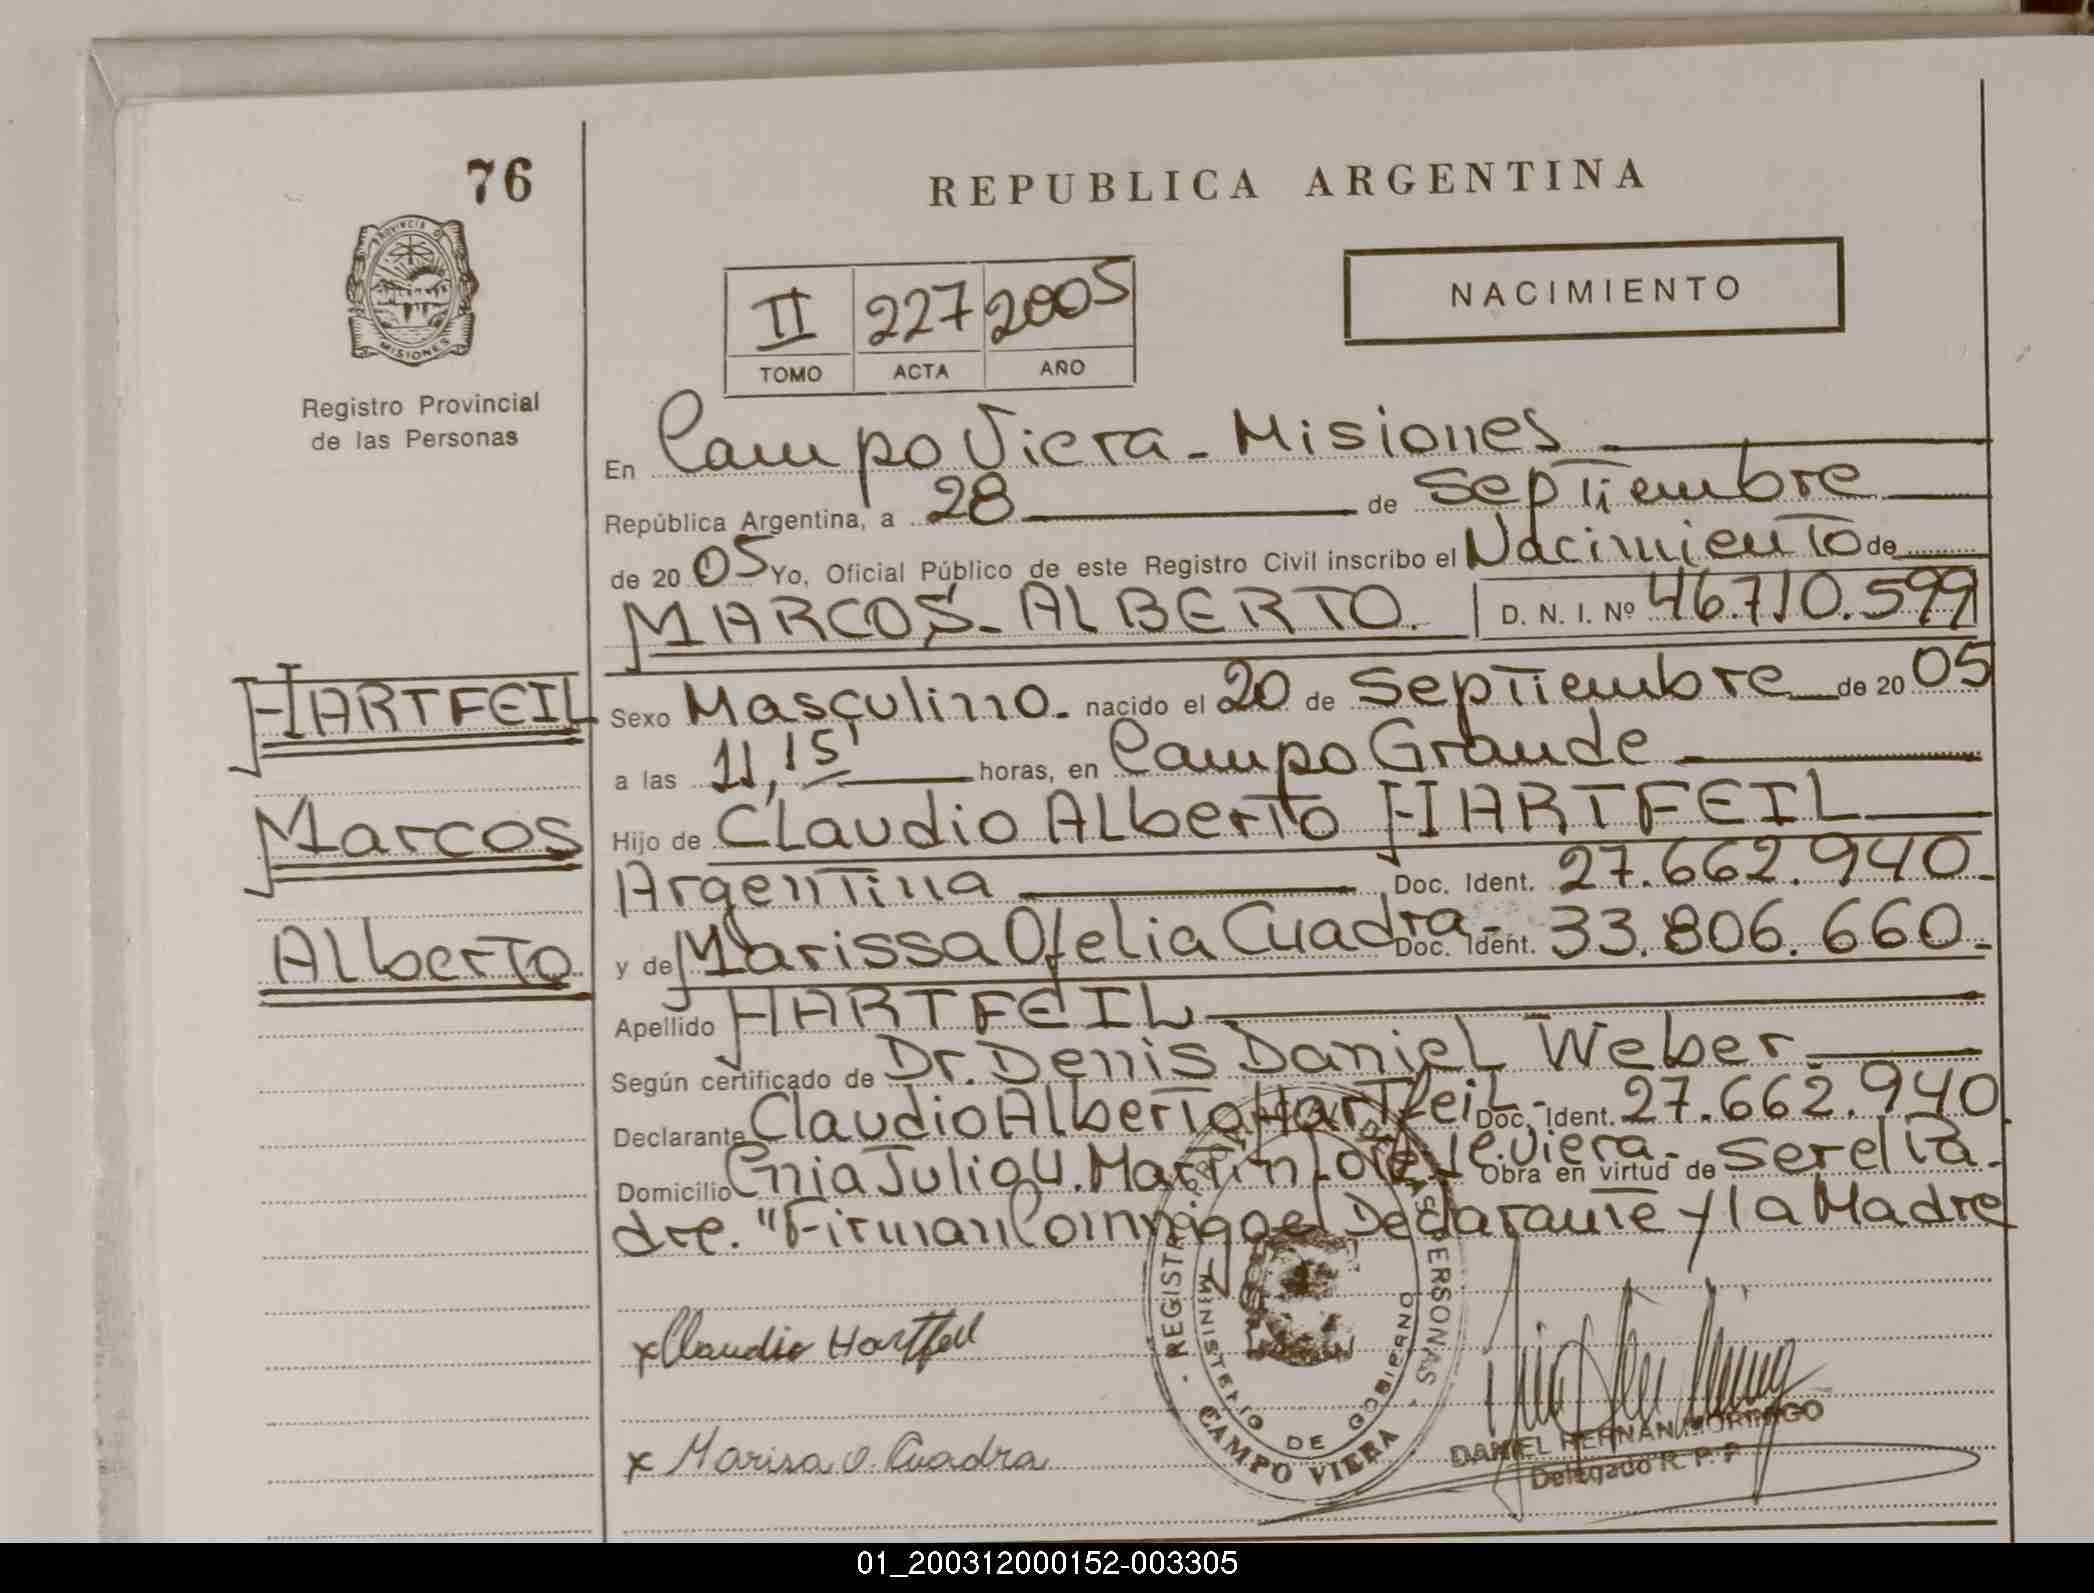 76
REPUBLICA ARGENTINA
PROVINCIA D
MISIONES
Registro Provincial
de las Personas
II 227 2005
TOMO ACTA AÑO
NACIMIENTO
En Campo Viera - Misiones
República Argentina, a 28 de Septiembre
de 2005 Yo, Oficial Público de este Registro Civil inscribo el Nacimiento de
MARCOS - ALBERTO. D. N. I. Nº 46.710.599
HARTFEIL
Marcos
Alberto
Sexo Masculino - nacido el 20 de Septiembre de 2005
a las 11,15' horas, en Campo Grande
Hijo de Claudio Alberto HARTFEIL
Argentina Doc. Ident. 27.662.940-
y de Marissa Ofelia Cuadra - Doc. Ident. 33.806.660-
Apellido HARTFEIL
Según certificado de Dr. Denis Daniel Weber
Declarante Claudio Alberto Hartfeil - Doc. Ident. 27.662.940
Domicilio Cnia Julio U. Martin Viera - Obra en virtud de ser el Pa-
dre. "Firman Conmigo el Declarante y la Madre
x Claudio Hartfeil
x Marisa O. Cuadra
REGISTRO PERSONAS
MINISTERIO DE GOBIERNO
CAMPO VIERA
DANIEL HERNAN
Delegado R. P. P
01_200312000152-003305